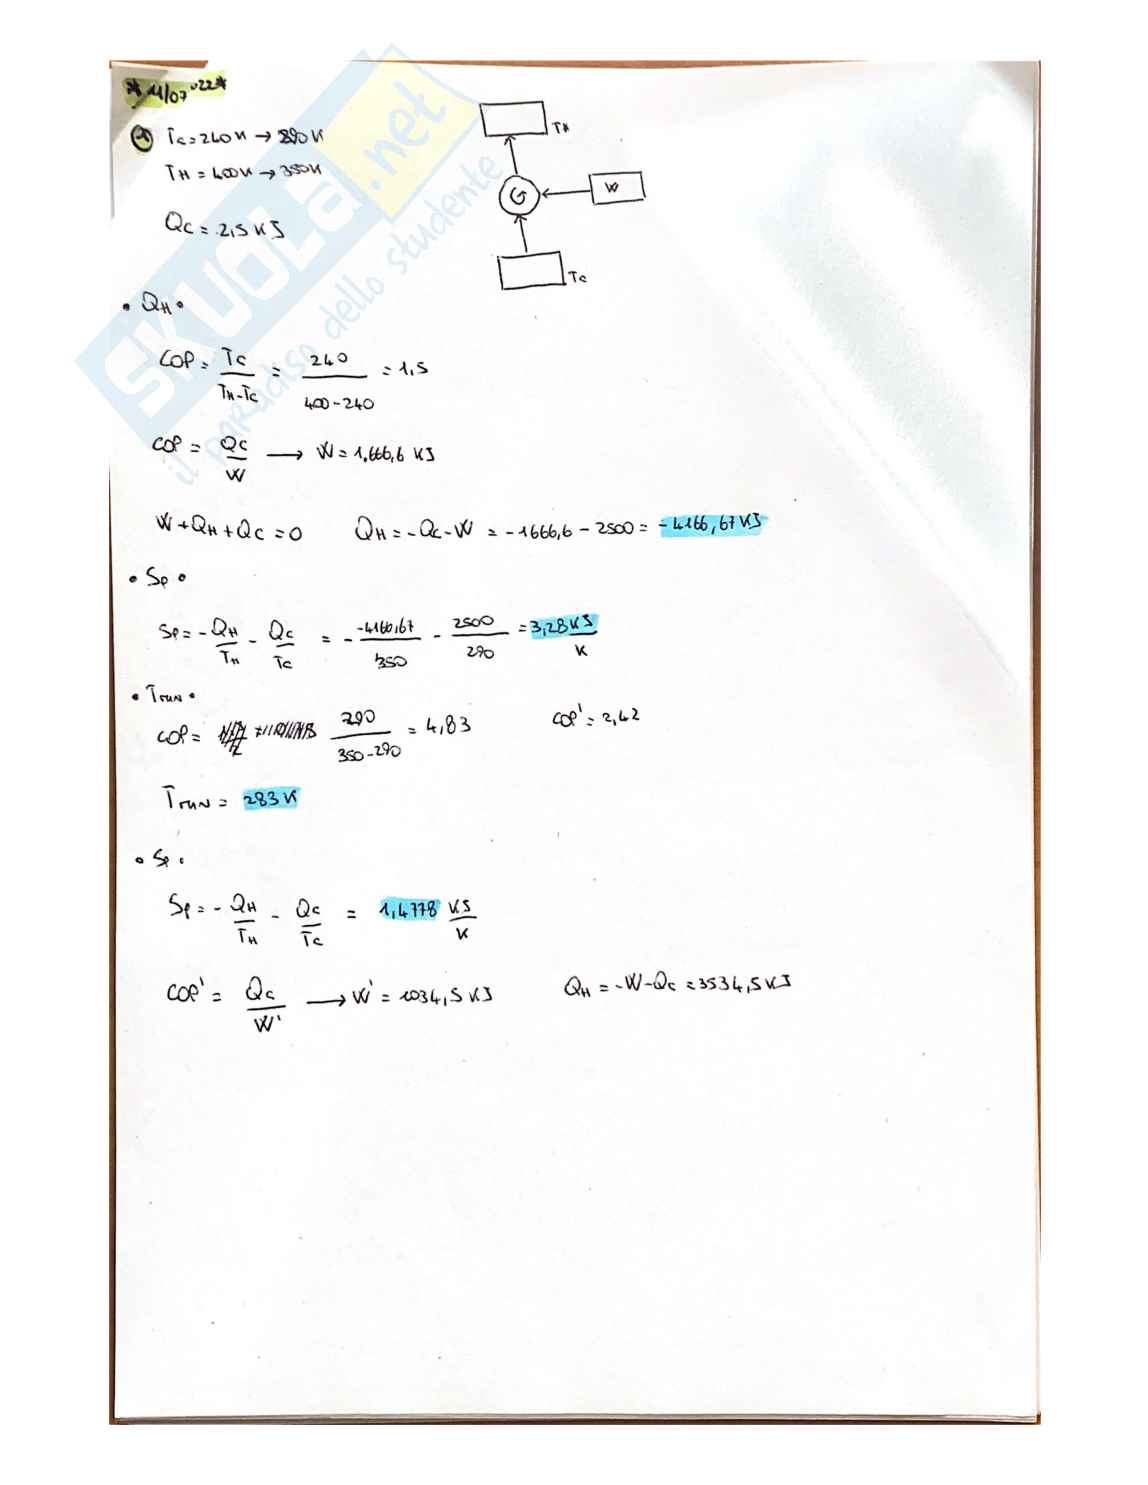 * 11/07 '22 *
A Tc = 240 K → 290 K
TH = 400 K → 350 K
Qc = 2,5 KJ
TH
W
Tc
• QH •
COP = Tc / (TH - Tc) = 240 / (400 - 240) = 1,5
COP = Qc / W → W = 1.666,6 KJ
W + QH + Qc = 0 QH = -Qc - W = -1666,6 - 2500 = -4166,67 KJ
• Sp •
Sp = - QH / TH - Qc / Tc = - -4166,67 / 350 - 2500 / 290 = 3,28 KJ / K
• TMIN •
COP = 290 / (350 - 290) = 4,83 COP' = 2,42
TMIN = 283 K
• Sp •
Sp = - QH / TH - Qc / Tc = 1,4778 KJ / K
COP' = Qc / W' → W' = 1034,5 KJ QH = -W - Qc = 3534,5 KJ
SKUOLA.net
il paradiso dello studente